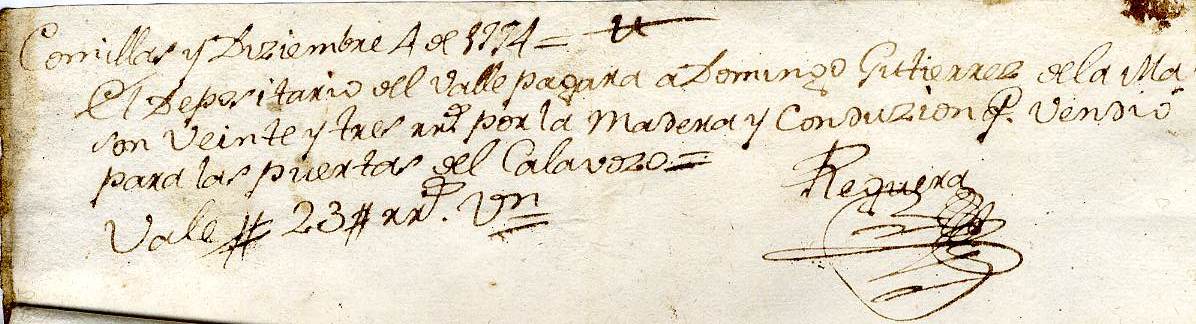 Comillas y Diziembre 4 de 1774 =
El Depositario del Valle pagara a Domingo Gutierrez de la Ma
son Veinte y tres rrs. por la Madera y Conduzion q. Vendio
para las puertas del Calavozo =
Vale # 23 # rrs. Vn
Reguera